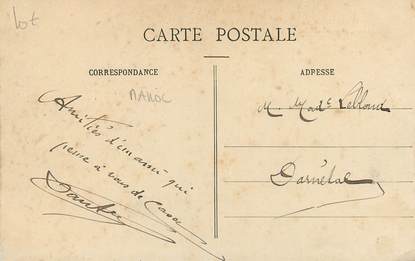 lot
CARTE POSTALE
CORRESPONDANCE
ADRESSE
MAROC
Amitiés d'un ami qui
pense à vous de Casa
M. Mad^e Leblond
Darnétal